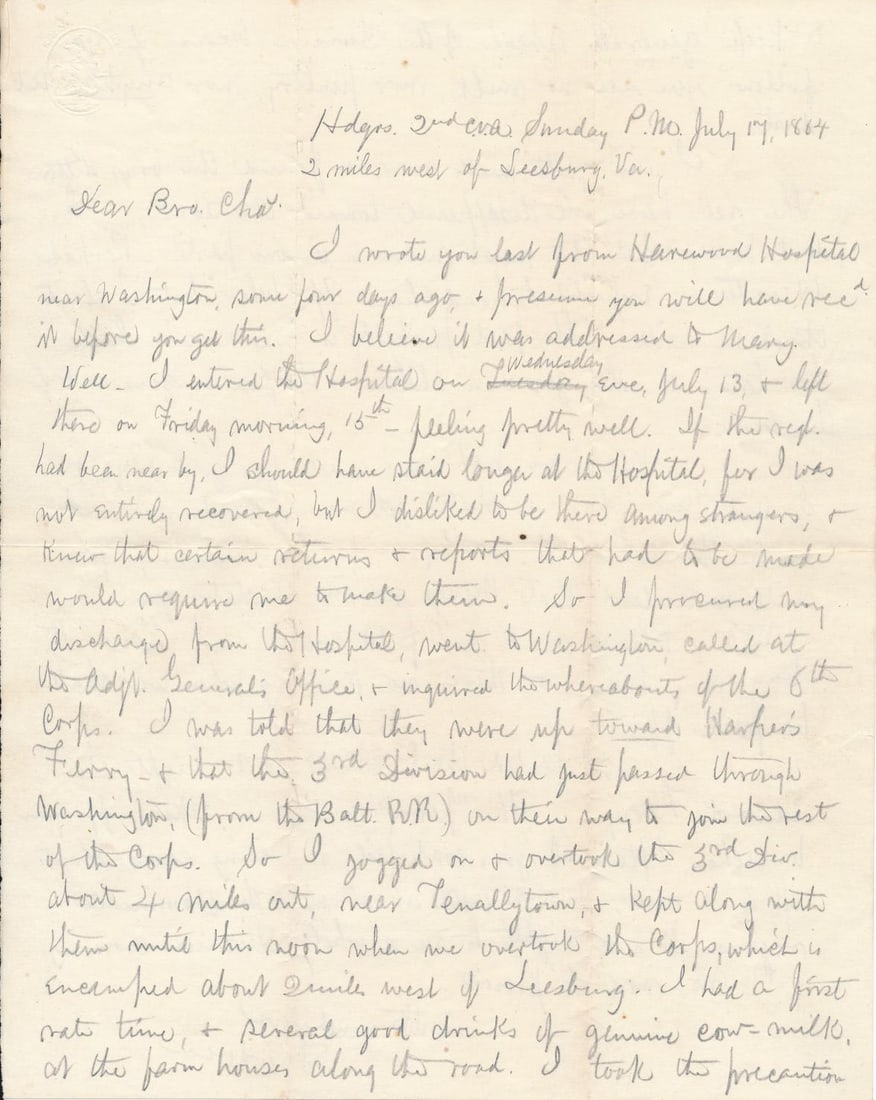 Hdqrs. 2nd C.V.A. Sunday P.M. July 17, 1864
2 miles west of Leesburg, Va.
Dear Bro. Chas.
I wrote you last from Harewood Hospital
near Washington, some four days ago, & presume you will have recd
it before you get this. I believe it was addressed to Mary.
Wednesday
Well - I entered the Hospital on Tuesday Eve, July 13, & left
there on Friday morning, 15th - feeling pretty well. If the regt.
had been near by, I should have staid longer at the Hospital, for I was
not entirely recovered, but I disliked to be there among strangers, &
knew that certain returns & reports that had to be made
would require me to make them. So I procured my
discharge from the Hospital, went to Washington, called at
the Adjt. General's Office, & inquired the whereabouts of the 6th
Corps. I was told that they were up toward Harper's
Ferry - & that the 3rd Division had just passed through
Washington, (from the Balt. R.R.) on their way to join the rest
of the Corps. So I jogged on & overtook the 3rd Div.
about 4 miles out, near Tenallytown, & kept along with
them until this noon when we overtook the Corps, which is
encamped about 2 miles west of Leesburg. I had a first
rate time, & several good drinks of genuine cow-milk,
at the farm houses along the road. I took the precaution